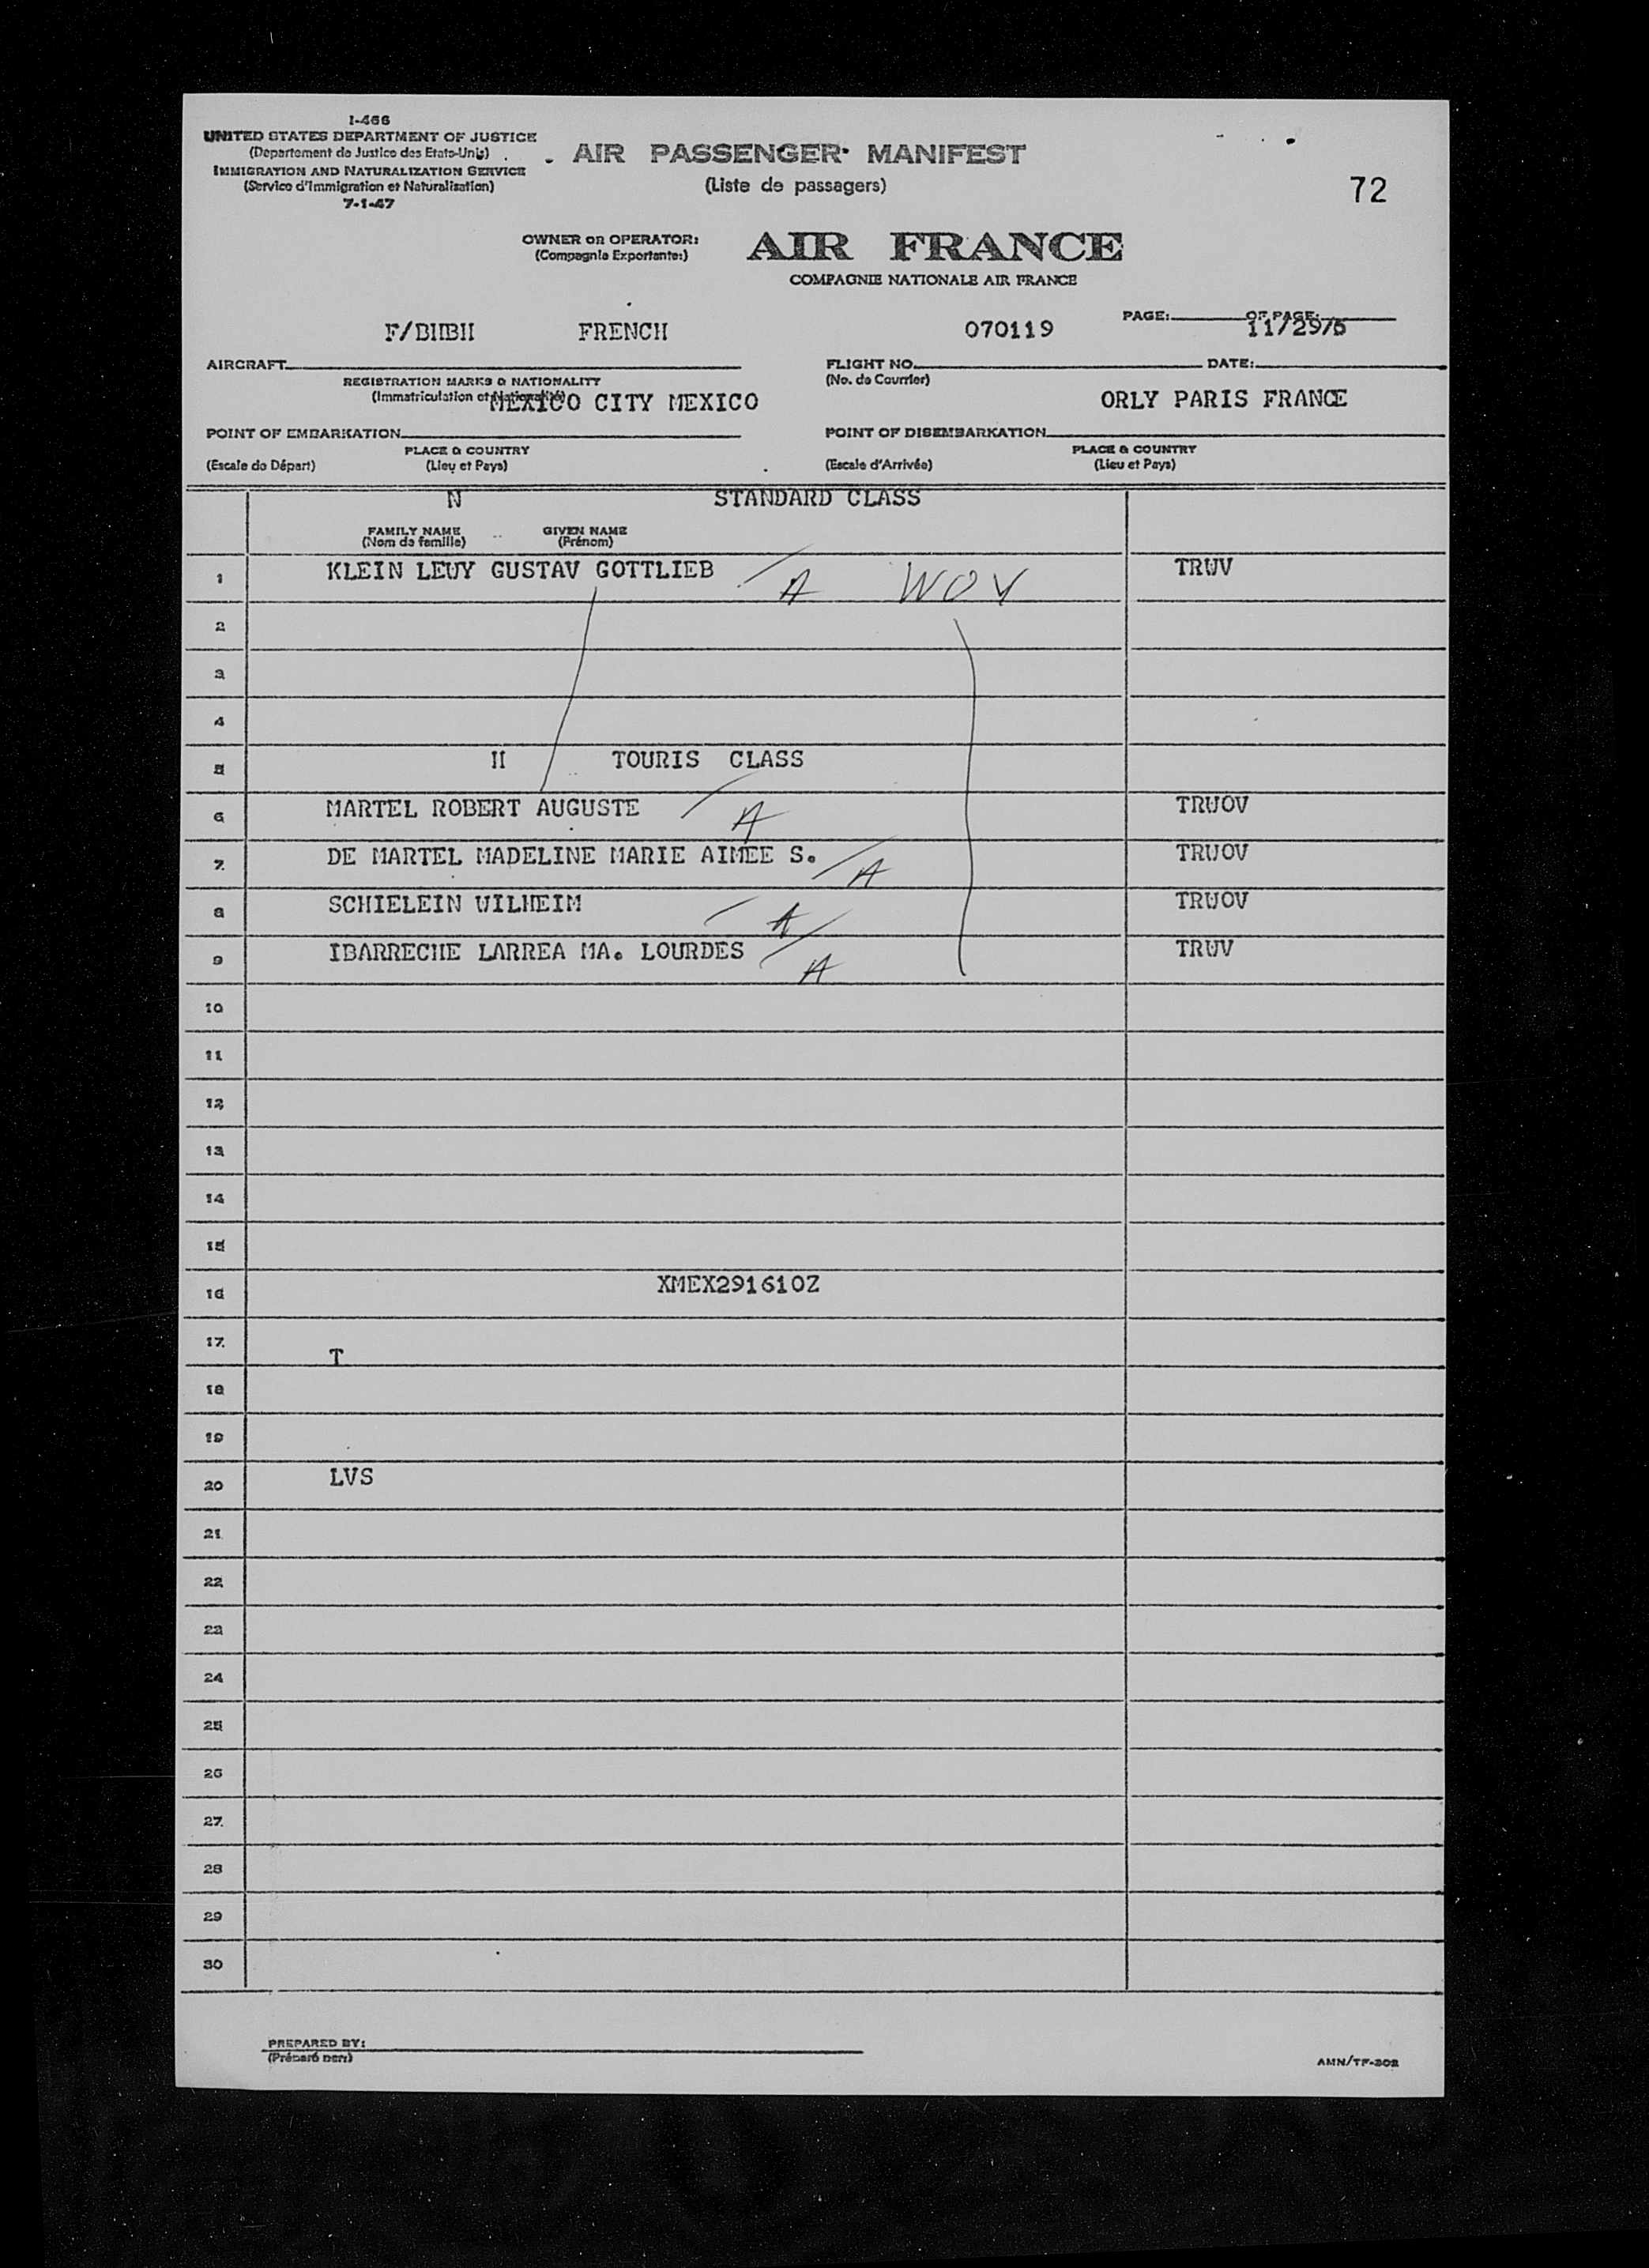 I-466
UNITED STATES DEPARTMENT OF JUSTICE
(Departement de Justice des Etats-Unis)
IMMIGRATION AND NATURALIZATION SERVICE
(Service d'Immigration et Naturalisation)
7-1-47
AIR PASSENGER MANIFEST
(Liste de passagers)
72
OWNER OR OPERATOR:
(Compagnie Exportante:)
AIR FRANCE
COMPAGNIE NATIONALE AIR FRANCE
PAGE: OF PAGE:
F/BHBH FRENCH 070119 11/29/5
AIRCRAFT FLIGHT NO. DATE:
REGISTRATION MARKS & NATIONALITY (No. de Courrier)
(Immatriculation et Nationalité)
MEXICO CITY MEXICO ORLY PARIS FRANCE
POINT OF EMBARKATION POINT OF DISEMBARKATION
PLACE & COUNTRY PLACE & COUNTRY
(Escale de Départ) (Lieu et Pays) (Escale d'Arrivée) (Lieu et Pays)
N STANDARD CLASS
FAMILY NAME GIVEN NAME
(Nom de famille) (Prénom)
1 KLEIN LEWY GUSTAV GOTTLIEB A WOV TRWV
2
3
4
5 H TOURIS CLASS
6 MARTEL ROBERT AUGUSTE A TRWOV
7 DE MARTEL MADELINE MARIE AIMEE S. A TRWOV
8 SCHIELEIN WILHEIM A TRWOV
9 IBARRECHE LARREA MA. LOURDES A TRWV
10
11
12
13
14
15
16 XMEX291610Z
17 T
18
19
20 LVS
21
22
23
24
25
26
27
28
29
30
PREPARED BY:
(Préparé par:)
AMN/TF-302